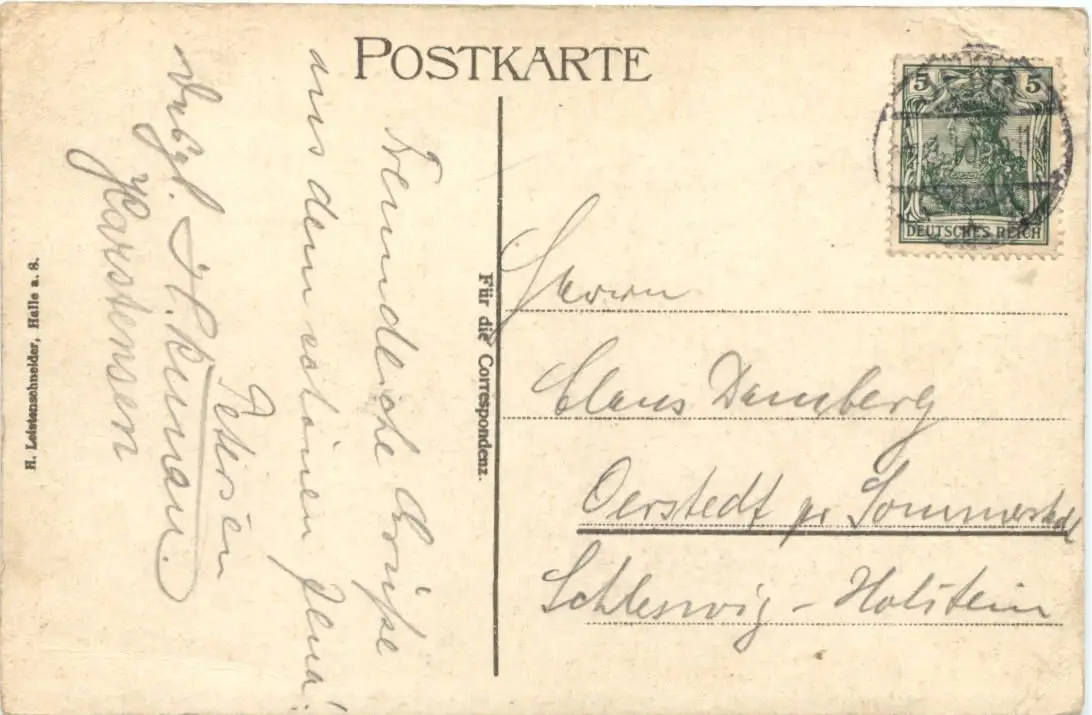 POSTKARTE
5 5
DEUTSCHES REICH
Für die Correspondenz.
H. Leistenschneider, Halle a. S.
Freundliche Grüße
aus dem schönen Jena!
Petersen
Karstensen
Herrn
Claus Damberg
Oerstedt pr Sommerstedt
Schleswig-Holstein